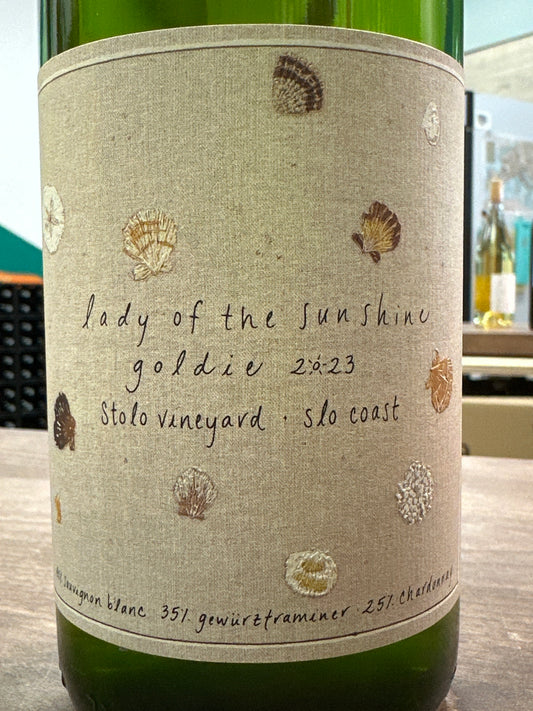 lady of the sunshine
goldie 2023
Stolo vineyard · slo coast
Sauvignon blanc 35% gewürztraminer · 25% Chardonnay